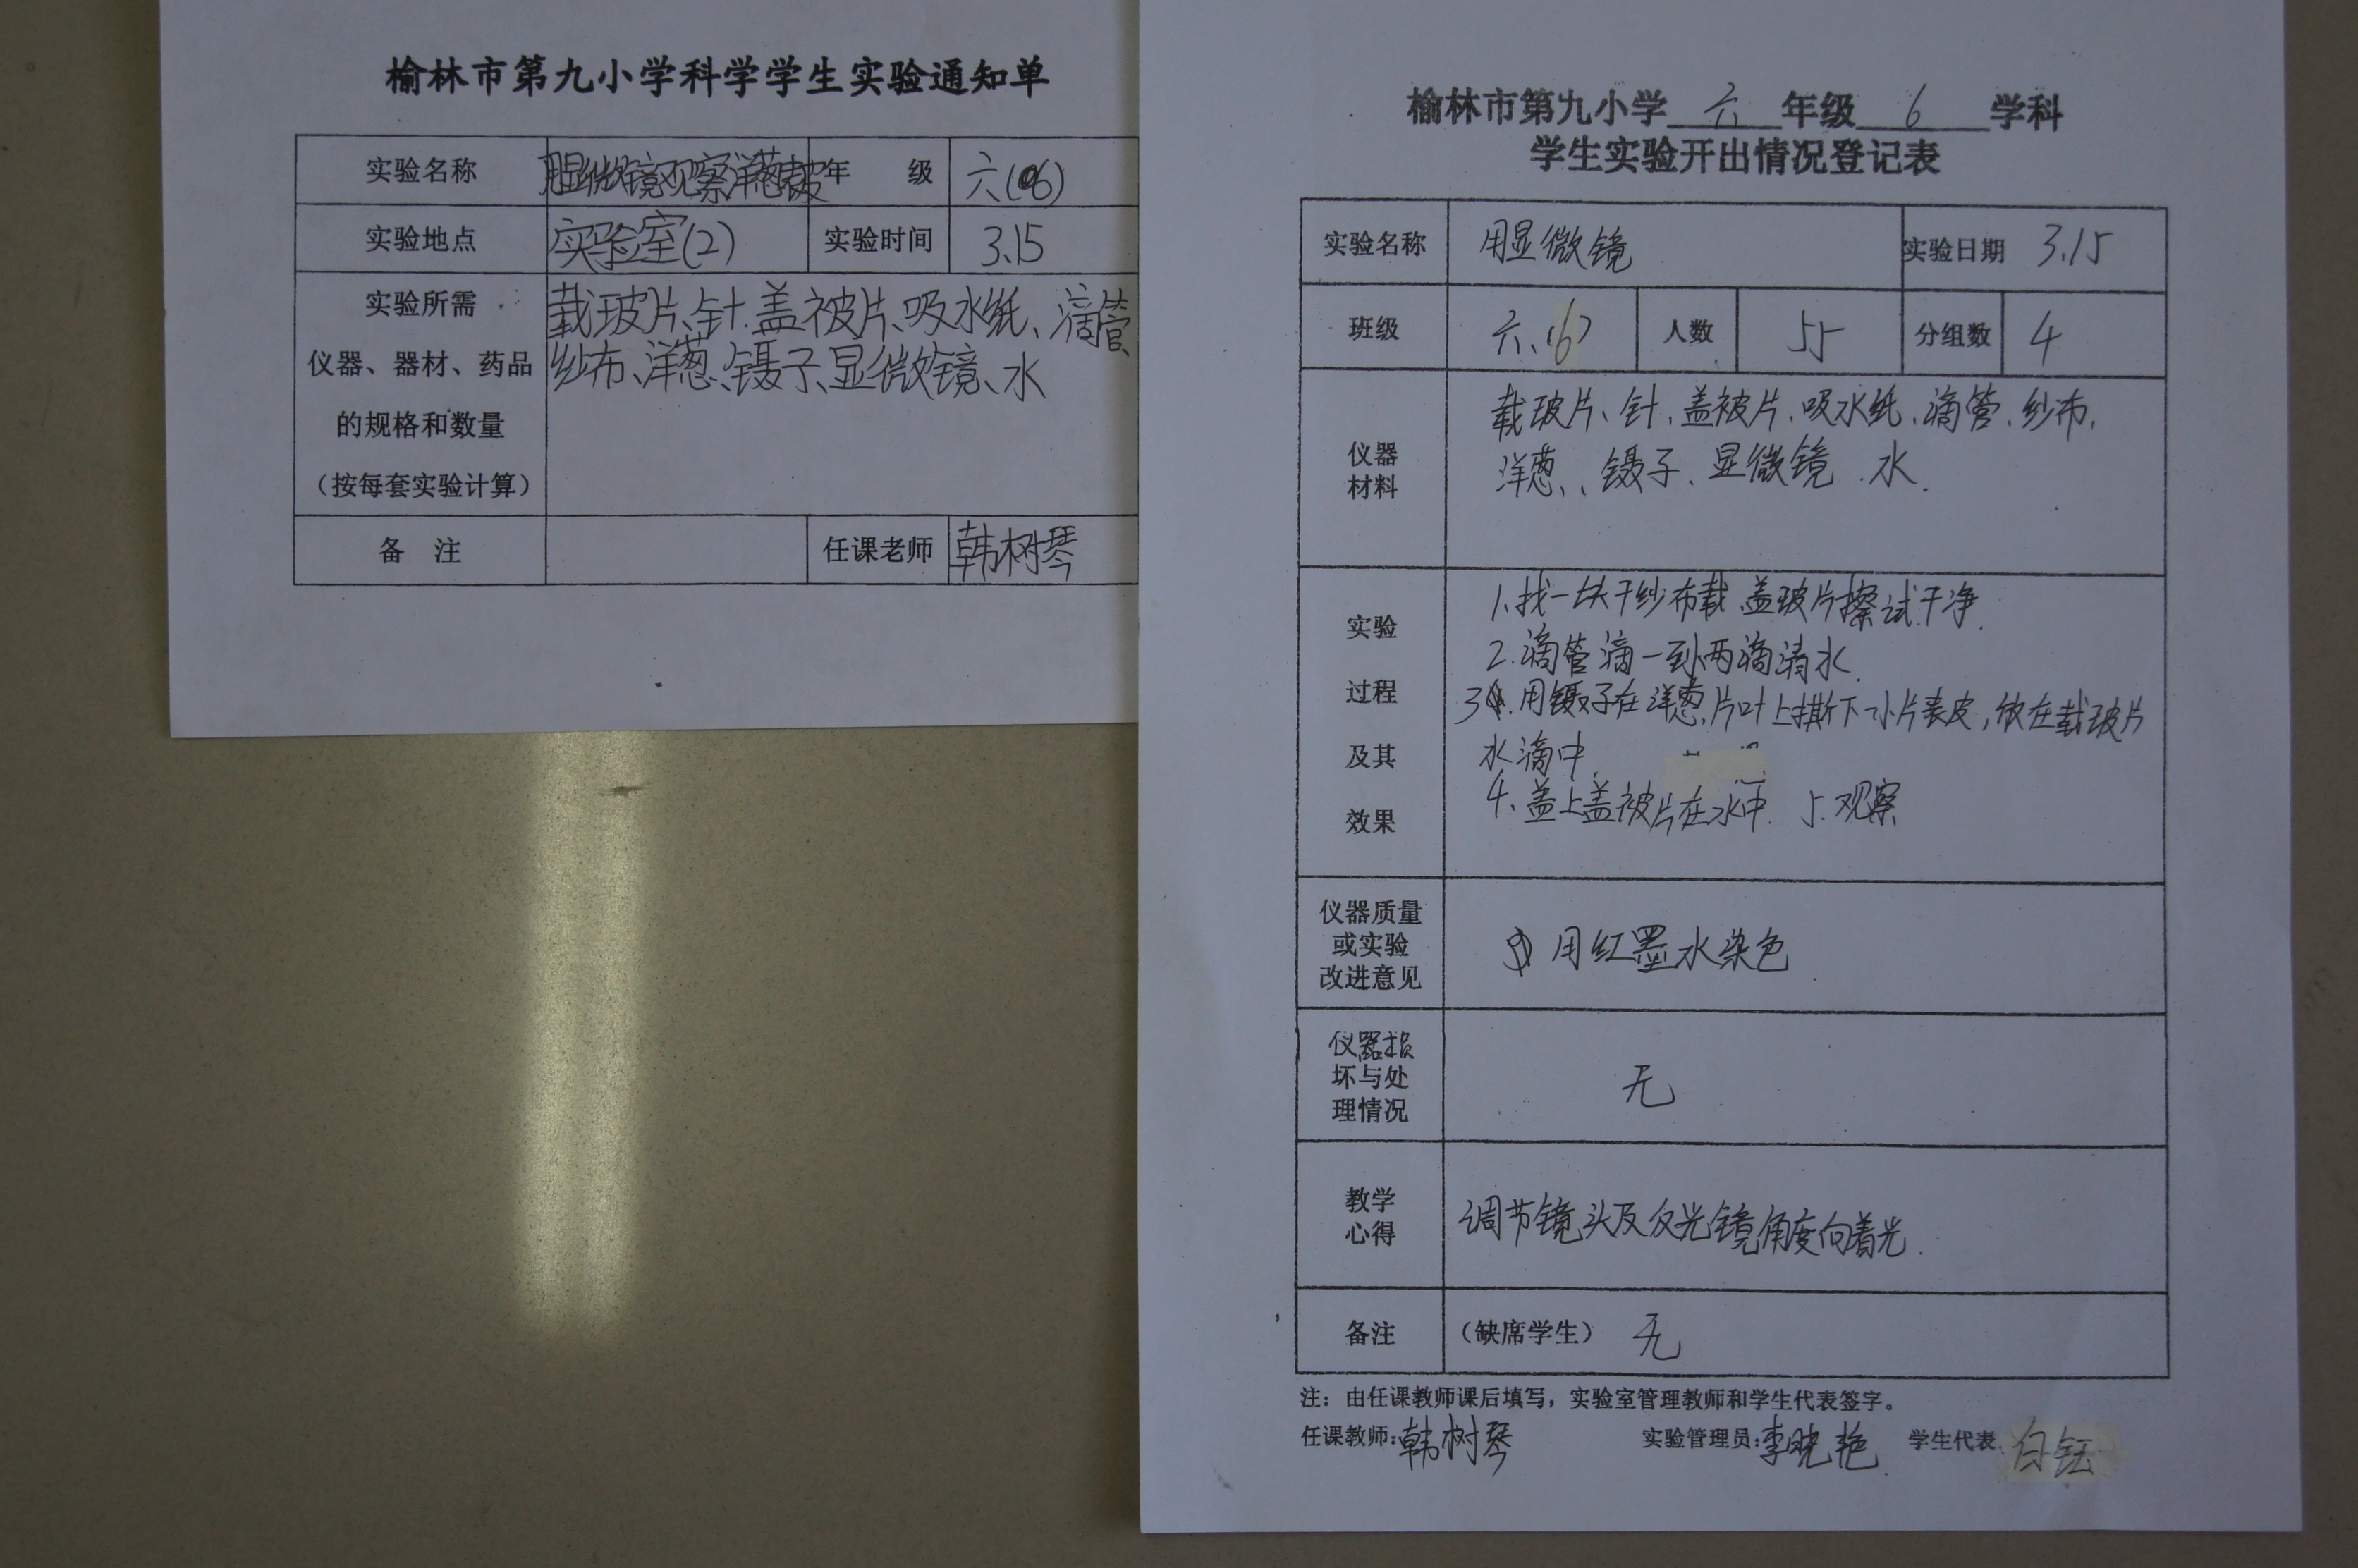 榆林市第九小学科学学生实验通知单
实验名称 用显微镜观察洋葱表皮 年 级 六(6)
实验地点 实验室(2) 实验时间 3.15
实验所需
仪器、器材、药品
的规格和数量
（按每套实验计算）
载玻片、针.盖被片、吸水纸、滴管
纱布、洋葱、镊子、显微镜、水
备 注 任课老师 韩树琴
榆林市第九小学 六 年级 6 学科
学生实验开出情况登记表
实验名称 用显微镜 实验日期 3.15
班级 六、(6) 人数 55 分组数 4
仪器
材料
载玻片、针、盖被片、吸水纸、滴管、纱布、
洋葱、、镊子、显微镜.水.
实验
过程
及其
效果
1.找一块干纱布载.盖玻片擦试干净.
2.滴管滴一到两滴清水.
3.用镊子在洋葱片叶上撕下一小片表皮，放在载玻片
水滴中.
4、盖上盖被片在水中. 5.观察
仪器质量
或实验
改进意见
用红墨水染色.
仪器损
坏与处
理情况
无
教学
心得
调节镜头及反光镜角度向着光.
备注 （缺席学生） 无
注：由任课教师课后填写，实验室管理教师和学生代表签字。
任课教师:韩树琴 实验管理员:李晓艳. 学生代表. 白钰